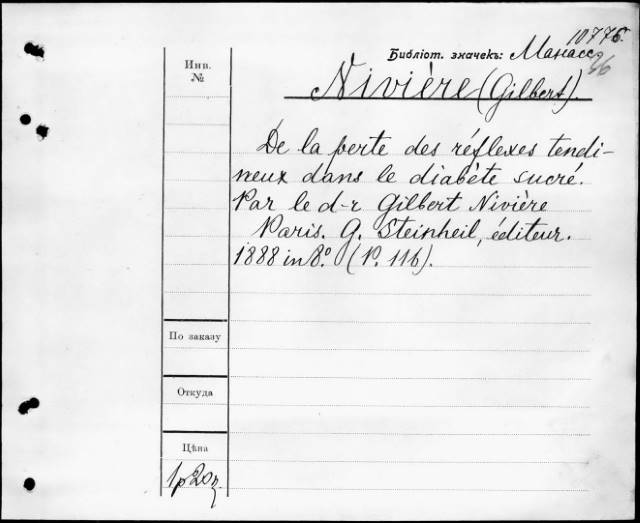 10776.
Библіот. значекъ: Манасс
36
Инв.
№
Nivière (Gilbert).
De la perte des réflexes tendi-
neux dans le diabète sucré.
Par le d-r Gilbert Nivière
Paris. G. Steinheil, éditeur.
1888 in 8.° (P. 116).
По заказу
Откуда
Цѣна
1р 20